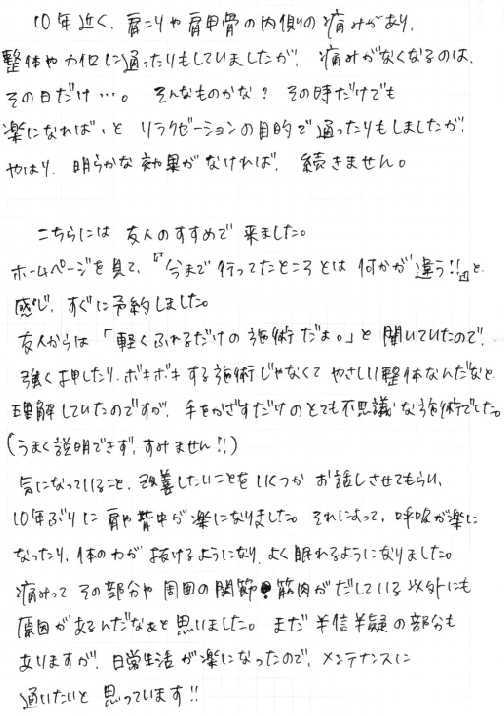 10年近く、肩こりや肩甲骨の内側の痛みがあり、
整体やカイロに通ったりもしていましたが、痛みがなくなるのは、
その日だけ…。そんなものかな？その時だけでも
楽になれば、と リラクゼーションの目的で通ったりもしましたが、
やはり、明らかな効果がなければ、続きません。
こちらには 友人のすすめで 来ました。
ホームページを見て、『今まで行ってたところとは 何かが 違う!!』と
感じ、すぐに予約しました。
友人からは「軽くふれるだけの施術だよ。」と聞いていたので、
強く押したり、ボキボキする施術じゃなくて やさしい整体なんだなと
理解していたのですが、手をかざすだけのとても不思議な施術でした。
(うまく説明できず、すみません!!)
気になっていること、改善したいことをいくつか お話しさせてもらい、
10年ぶりに肩や背中が楽になりました。それによって、呼吸が楽に
なったり、体の力が 抜けるようになり、よく眠れるようになりました。
痛みって その部分や 周囲の関節・筋肉がだしている 以外にも
原因があるんだなぁと思いました。まだ 半信半疑の部分も
ありますが、日常生活が楽になったので、メンテナンスに
通いたいと 思っています!!